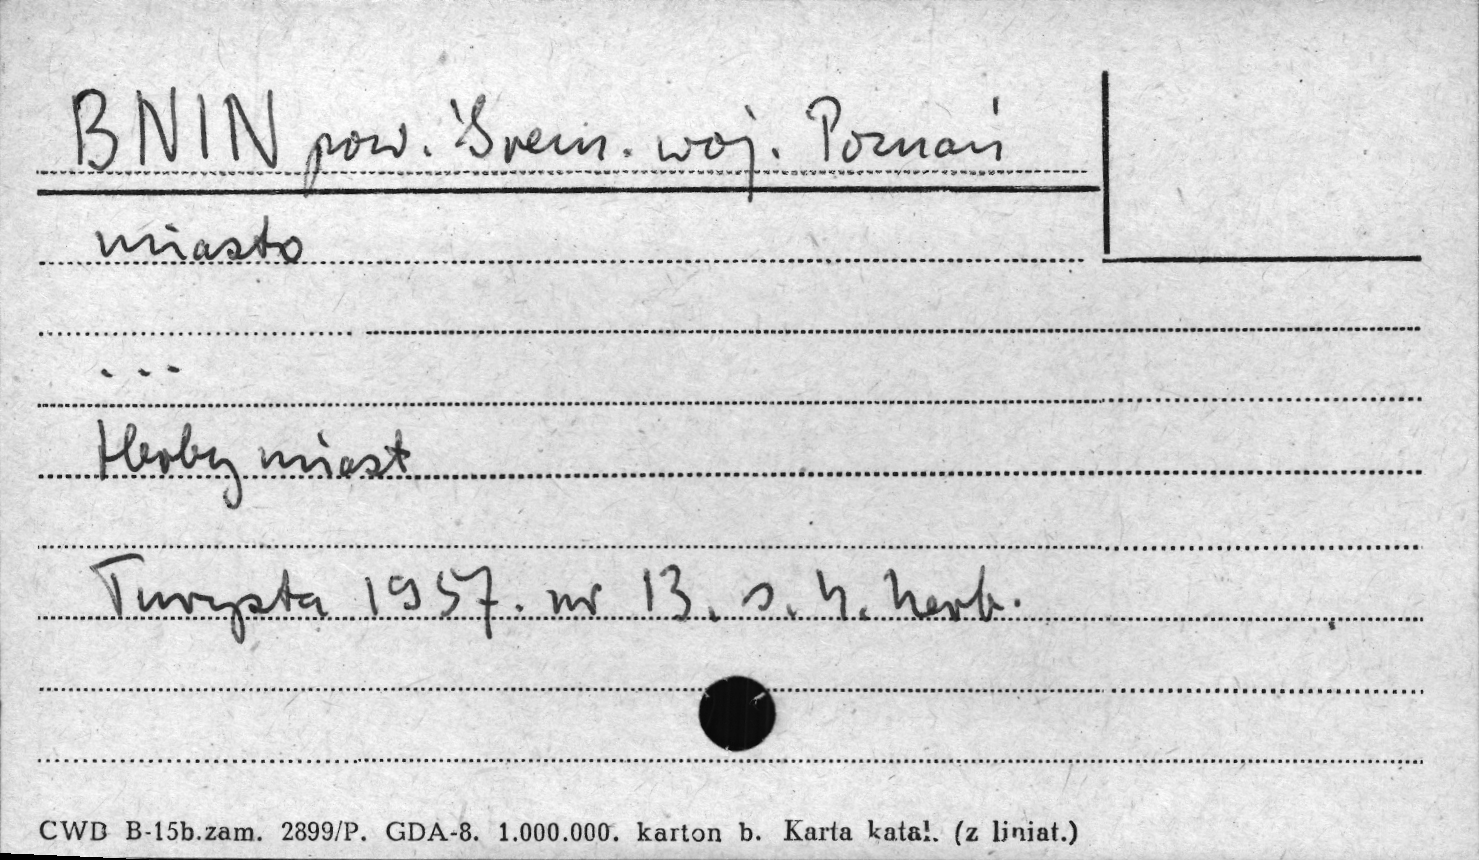 BNIN pow. Śrem. woj. Poznań
miasto
...
Herby miast
Turysta 1957. nr 13. s. 4. herb.
CWD B-15b.zam. 2899/P. GDA-8. 1.000.000. karton b. Karta katal. (z liniat.)